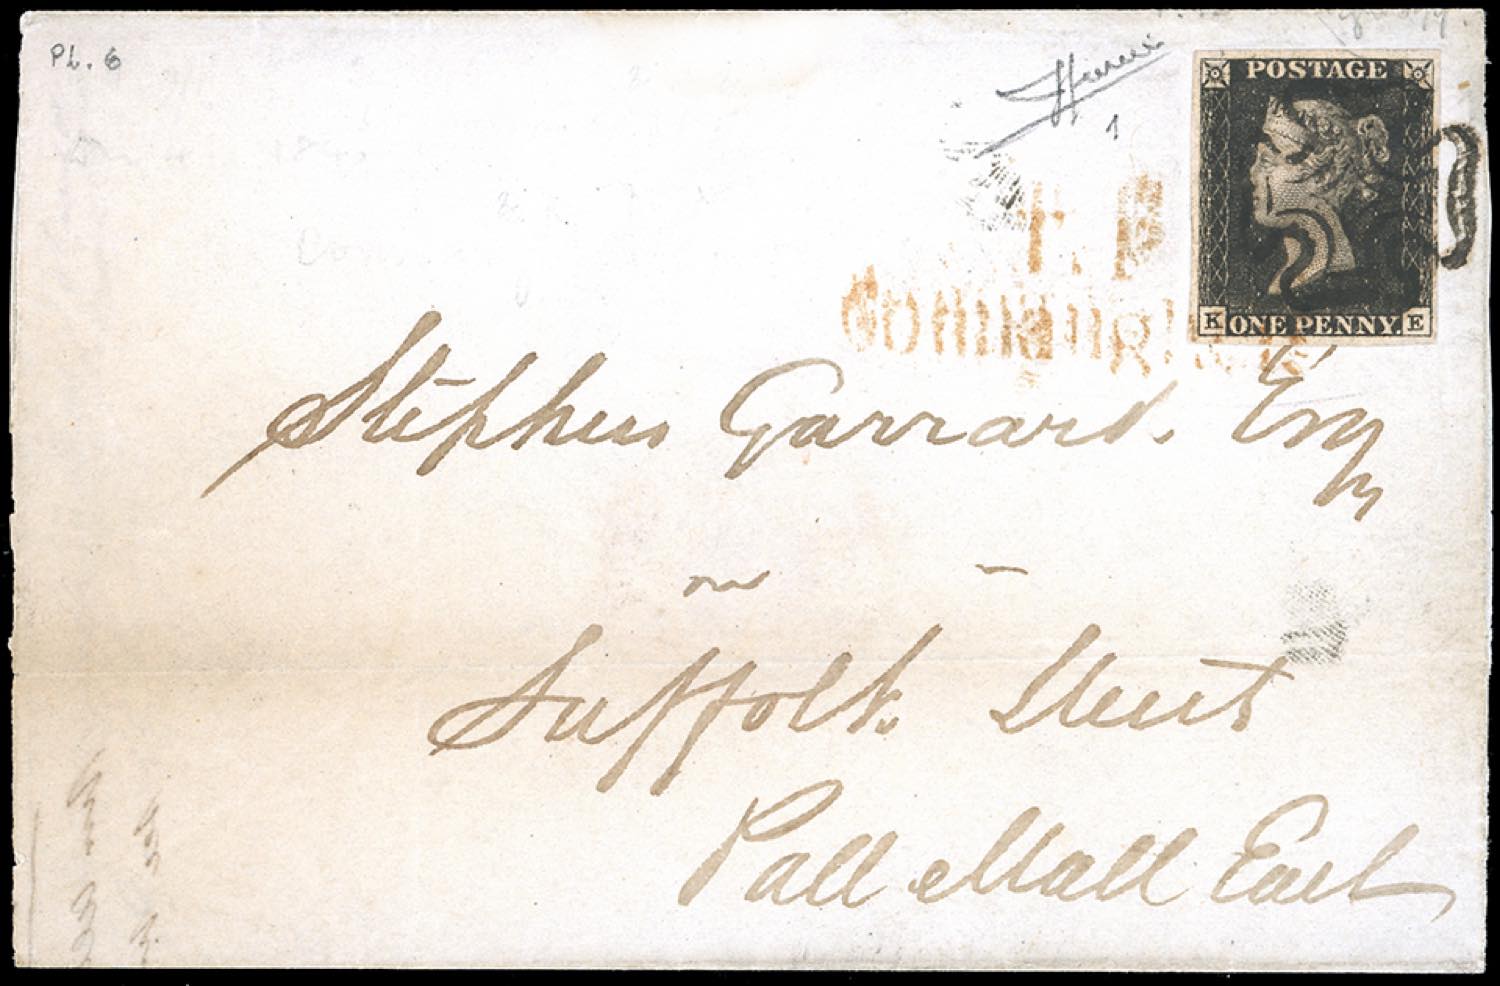 PL. 6
1
POSTAGE
K ONE PENNY. E
T.P
Kennington
Stephen Garrard. Esqr
Suffolk Street
Pall Mall East